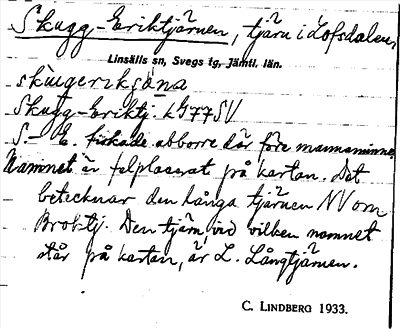 Skugg-Eriktjärnen, tjärn i Lofsdalen,
Linsälls sn, Svegs tg, Jämtl. län.
skùgeriksána
Skugg-Eriktj. LG77SV
S.- E. fiskade abborre där före mannaminne.
Namnet är felplacerat på kartan. Det
betecknar den långa tjärnen NV om
Brobtj. Den tjärn, vid vilken namnet
står på kartan, är L. Långtjärnen.
C. LINDBERG 1933.